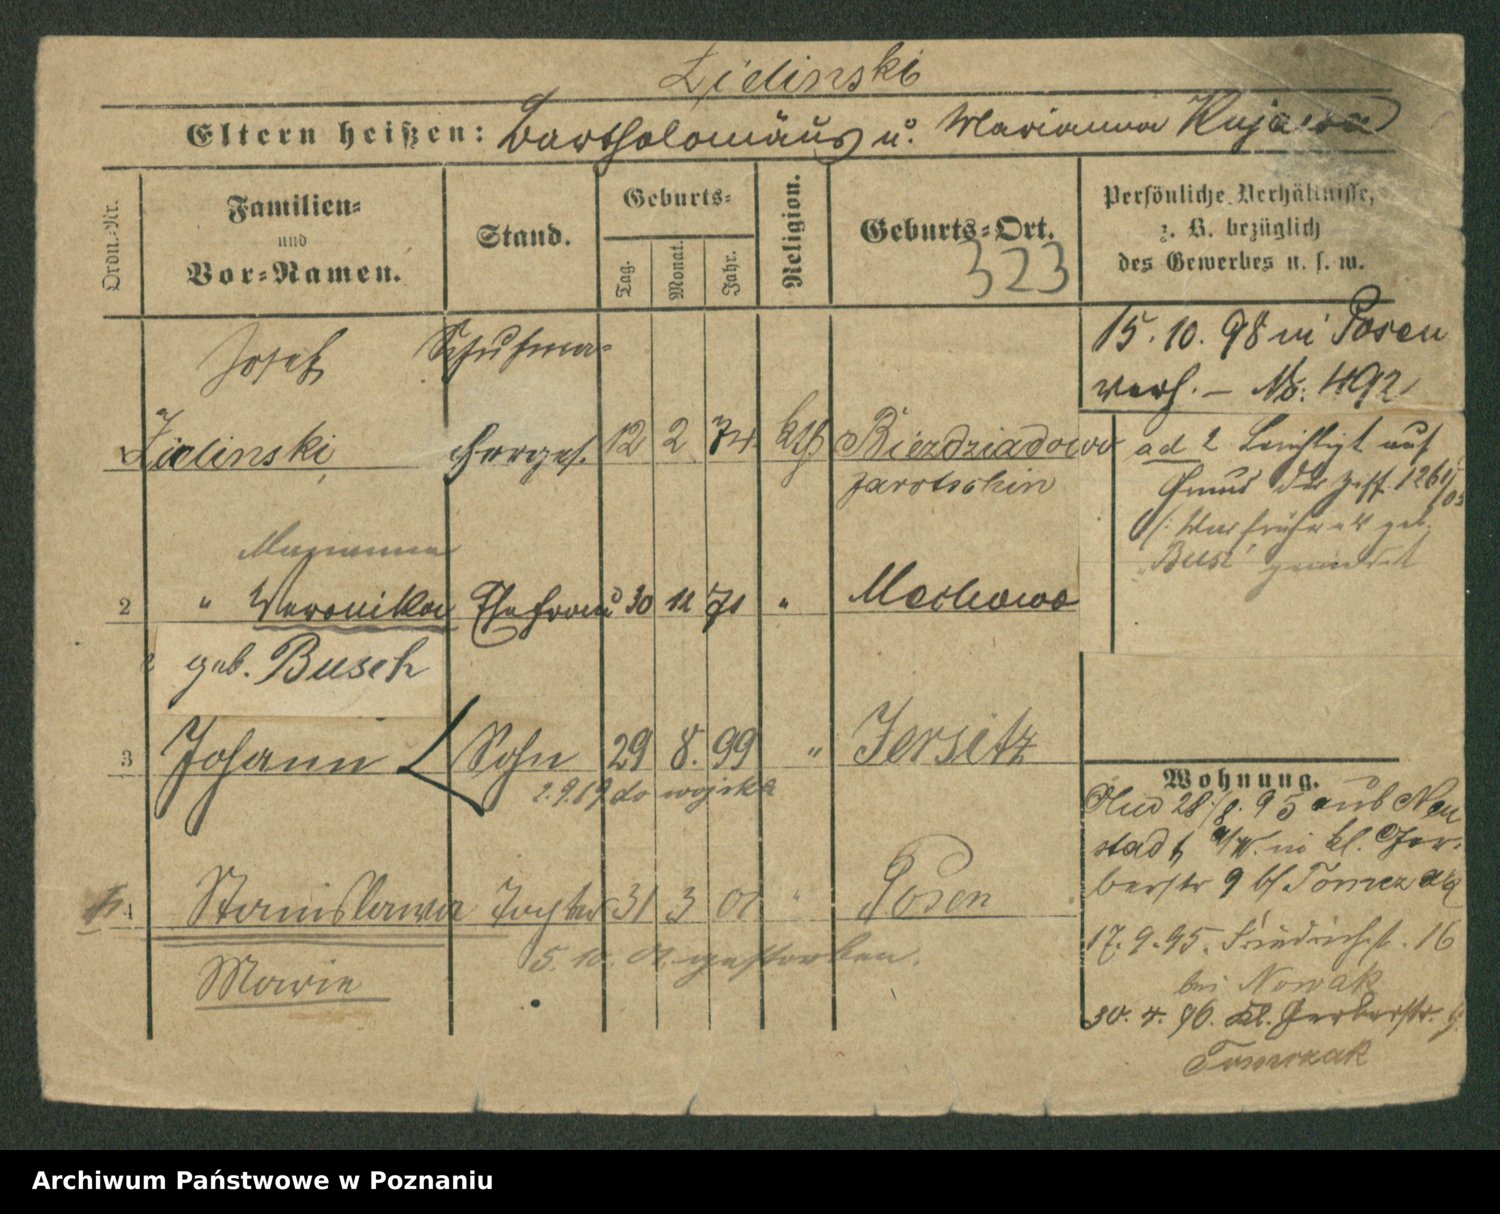 Zielinski
Eltern heißen: Bartholomäus u. Marianna Kujawa
Ordn.-Nr.
Familien- und Vor-Namen.
Stand.
Geburts-
Tag. Monat. Jahr.
Religion.
Geburts-Ort.
323
Persönliche Verhältnisse,
z. B. bezüglich
des Gewerbes u. s. w.
Josef Schuhma-
1 Zielinski, 12 2 74 kth Biezdziadowo
Jarotschin
15.10.98 in Posen
verh. – No. 492
ad 2 Berichtigt auf
Grund der Ziff. 1261/05
Marianna
2 " Veronika Ehefrau 30 12 71 " Mechowo
2 geb. Busch
3 Johann Sohn 29 8. 99 " Jersitz
2.9.19 do wojska
4 Stanislawa Tochter 31 3 01 " Posen
5. 10. 01. gestorben.
Marie
Wohnung.
28/8.95 aus Neu
stadt a/W. in kl. Ger-
berstr 9 bf Tomczak
17.9.95. Friedrichst. 16
bei Nowak
30. 4. 96. kl. Gerberstr. 9
Tomczak
Archiwum Państwowe w Poznaniu